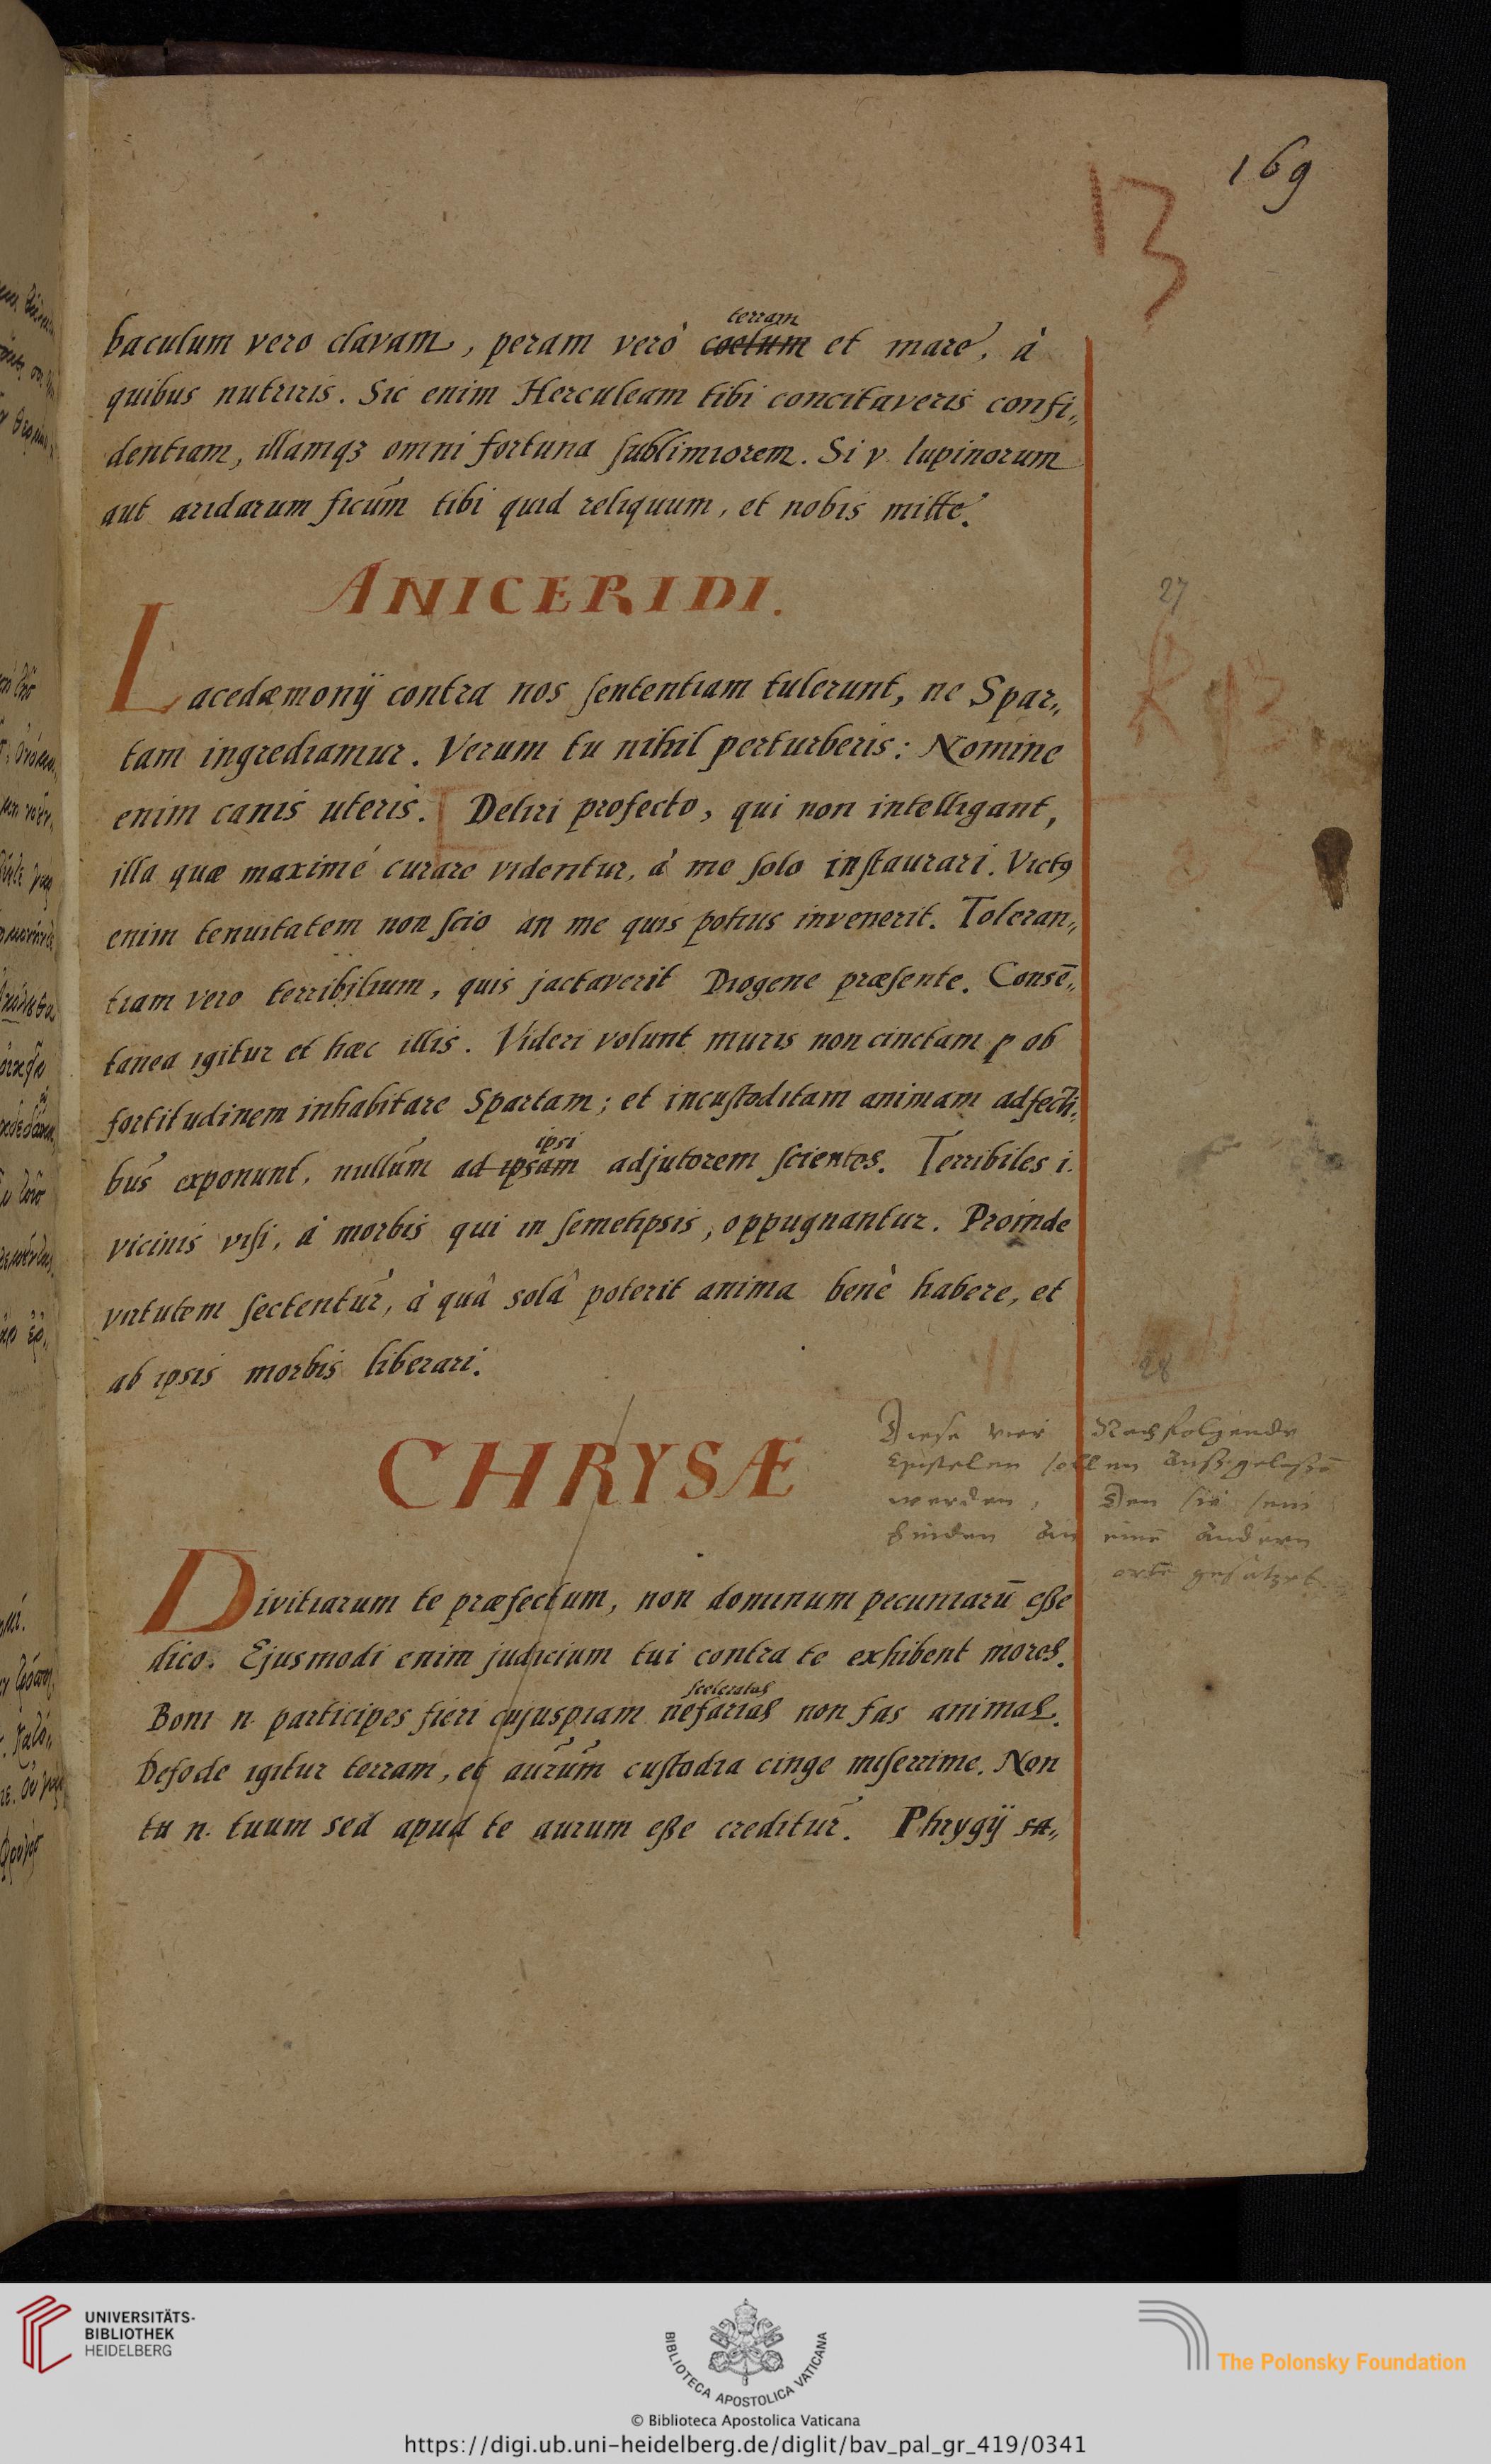 169
13
terram
baculum vero clavam, peram verò coelum et mare, à
quibus nutriris. Sic enim Herculeam tibi concitaveris confi„
dentiam, illamqꝫ omni fortuna ſublimiorem. Si v. lupinorum
aut aridarum ficúm tibi quid reliquum, et nobis mitte.
ANICERIDI.
27
Lacedæmonÿ contra nos ſententiam tulerunt, ne Spar„
tam ingrediamur. Verum tu nihil perturberis: Nomine
enim canis uteris. Deliri profecto, qui non intelligant,
illa quæ maximé curare videntur, à me ſolo inſtaurari. Victꝰ
enim tenuitatem non ſcio an me quis potius invenerit. Toleran„
tiam vero terribilium, quis jactaverit Diogene præſente. Consē„
tanea igitur et hæc illis. Videri volunt muris non cinctam p ob
fortitudinem inhabitare Spartam; et incuſtoditam animam adfecti„
ipsi
bus exponunt, nullúm ad ipsam adjutorem ſcientes. Terribiles i.
vicinis viſi, à morbis qui in ſemetipsis, oppugnantur. Proinde
virtutem ſectentur, à quâ solâ poterit anima benè habere, et
ab ipsis morbis liberari.
28
CHRYSÆ
Diese vier Nachfolgende
Epistelen sollen Außgelaßē
werden, Den sie sein
hinden An einē Andern
ortē gesätzet
Divitiarum te præfectum, non dominum pecuniarū eße
dico. Ejusmodi enim judicium tui contra te exhibent mores.
sceleratas
Boni n. participes fieri cujuspiam nefarias non fas animas.
Defode igitur terram, et aurúm cuſtodia cinge miſerrime. Non
tu n. tuum sed apud te aurum eße creditur. Phrygÿ sa„
UNIVERSITÄTS-
BIBLIOTHEK
HEIDELBERG
BIBLIOTECA APOSTOLICA VATICANA
The Polonsky Foundation
© Biblioteca Apostolica Vaticana
https://digi.ub.uni-heidelberg.de/diglit/bav_pal_gr_419/0341